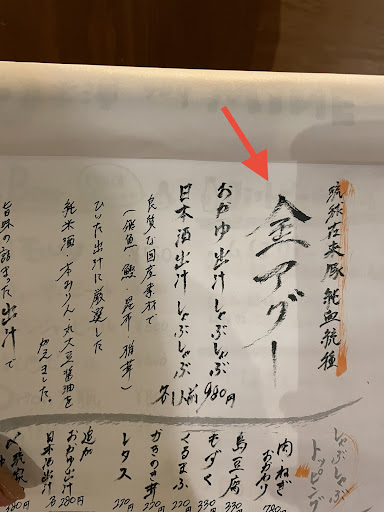 琉球在来豚 純血統種
金アグー
おかゆ出汁 しゃぶしゃぶ
日本酒出汁 しゃぶしゃぶ
各1人前 980円
良質な国産素材で
(鰹・昆布・椎茸)
ひいた出汁に厳選した
純米酒・本みりん・丸大豆醤油を
加えました。
旨味の詰まった出汁で
しゃぶしゃぶ
トッピング
肉・ねぎ
おかわり 780円
島豆腐 330
もずく 330
くるまぶ 220
かきのき茸 220
レタス 220
追加
おかゆ出汁
日本酒出汁 各280円
〆雑炊